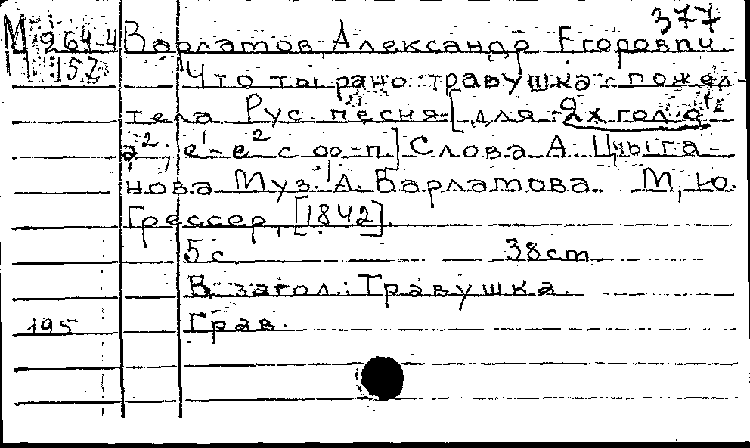 377
М 264-4 Варламов, Александр Егорович.
152 Что ты рано травушка пожел-
тела Рус. песня [для 2х гол.
a², e¹-e² с ф-п.] Слова А. Цыга-
нова Муз. А. Варламова. М, Ю.
Грессер, [1842].
5 с 38 cm
В загол: Травушка.
195 Грав.